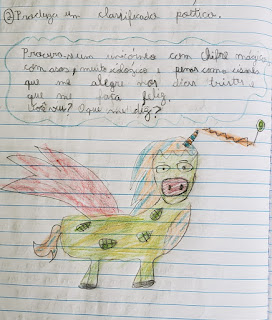 ② Produza um classificado poético.
Procura-se um unicórnio com chifre mágico,
com asas, muito
que me alegre nos dias tristes e
que me faça feliz.
Você viu? O que me diz?